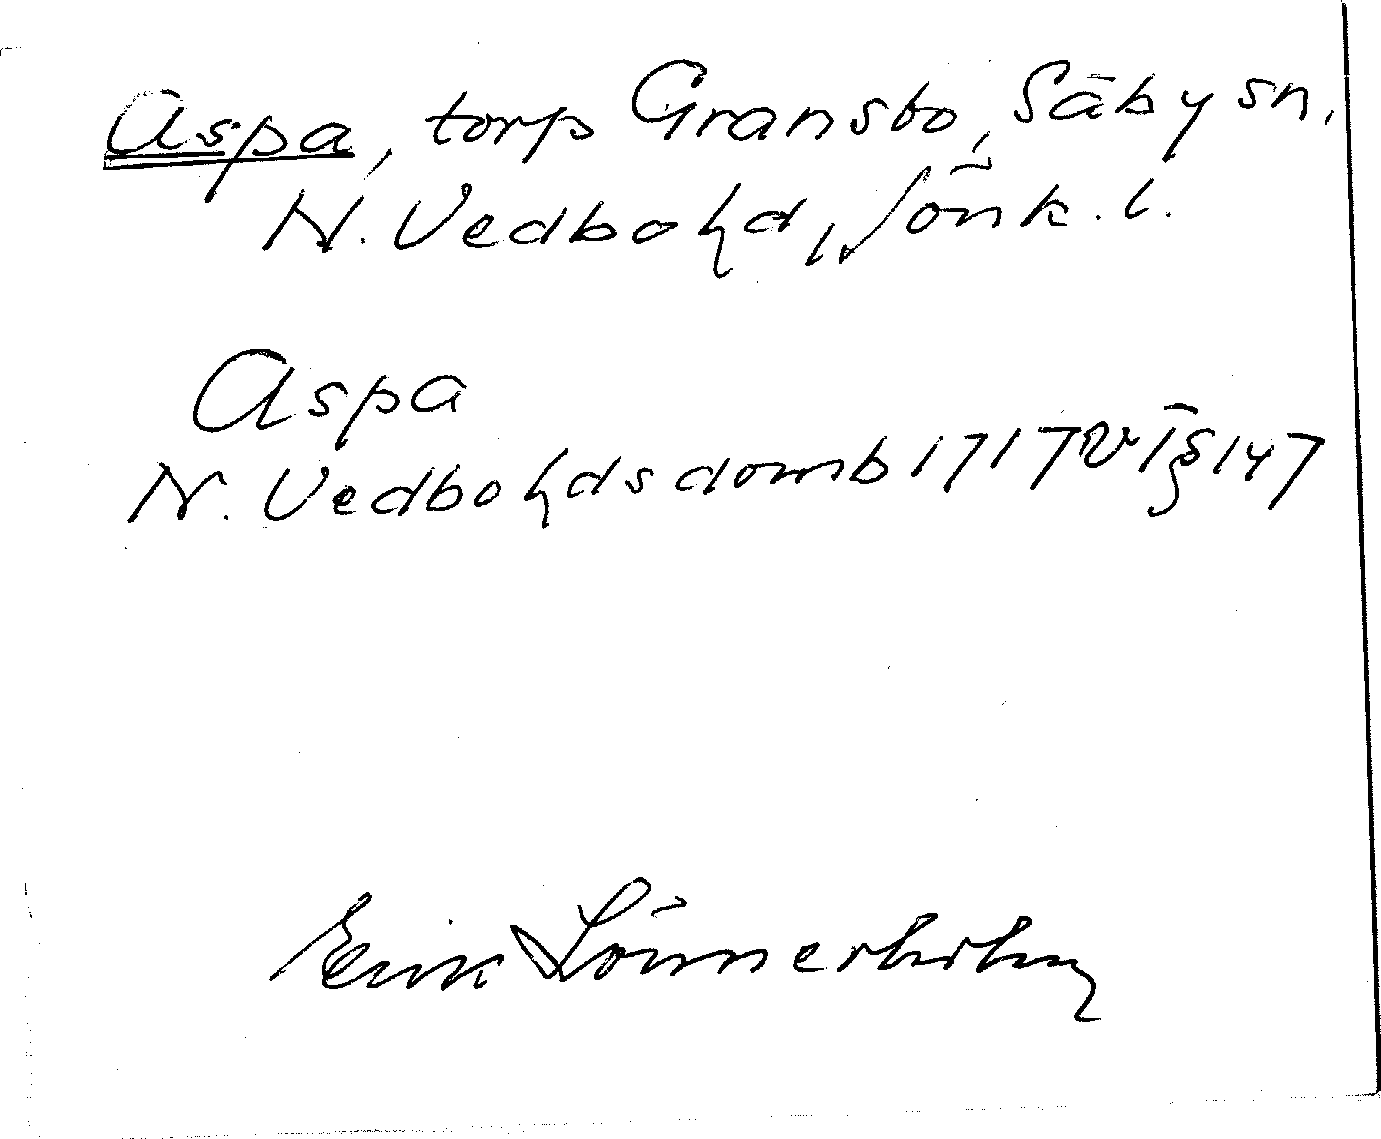 Aspa, torp Gransbo, Säby sn,
N. Vedbo hd, Jönk. l.
Aspa
N. Vedbo hds domb 1717 vt § 147
Erik Lönnerholm